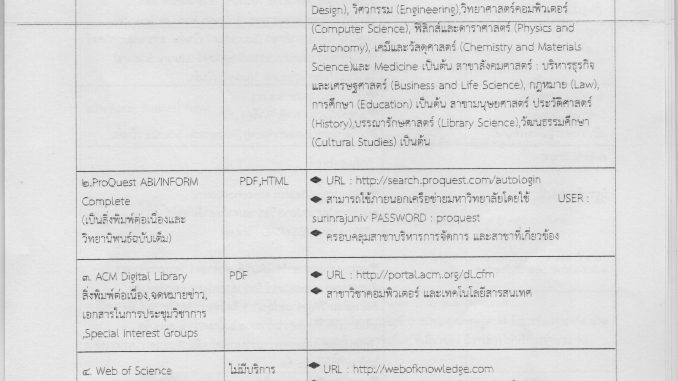 Design), วิศวกรรม (Engineering),วิทยาศาสตร์คอมพิวเตอร์
(Computer Science), ฟิสิกส์และดาราศาสตร์ (Physics and
Astronomy), เคมีและวัสดุศาสตร์ (Chemistry and Materials
Science)และ Medicine เป็นต้น สาขาสังคมศาสตร์ : บริหารธุรกิจ
และเศรษฐศาสตร์ (Business and Life Science), กฎหมาย (Law),
การศึกษา (Education) เป็นต้น สาขามนุษยศาสตร์ ประวัติศาสตร์
(History),บรรณารักษศาสตร์ (Library Science),วัฒนธรรมศึกษา
(Cultural Studies) เป็นต้น
๒.ProQuest ABI/INFORM
Complete
(เป็นสิ่งพิมพ์ต่อเนื่องและ
วิทยานิพนธ์ฉบับเต็ม)
PDF,HTML
◆ URL : http://search.proquest.com/autologin
◆ สามารถใช้ภายนอกเครือข่ายมหาวิทยาลัยโดยใช้ USER :
surinrajuniv PASSWORD : proquest
◆ ครอบคลุมสาขาบริหารการจัดการ และสาขาที่เกี่ยวข้อง
๓. ACM Digital Library
สิ่งพิมพ์ต่อเนื่อง,จดหมายข่าว,
เอกสารในการประชุมวิชาการ
,Special Interest Groups
PDF
◆ URL : http://portal.acm.org/dl.cfm
◆ สาขาวิชาคอมพิวเตอร์ และเทคโนโลยีสารสนเทศ
๔. Web of Science
ไม่มีบริการ
◆ URL : http://webofknowledge.com